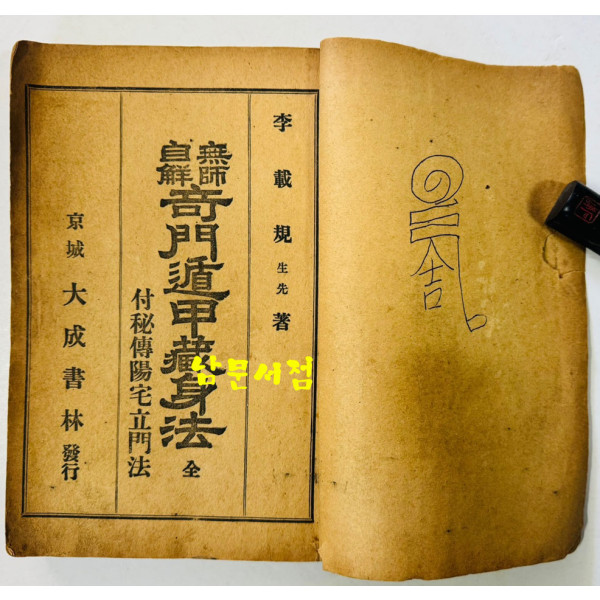 李載規 生先 著
無師自解
奇門遁甲藏身法 全
付秘傳陽宅立門法
京城 大成書林 發行
남문서점